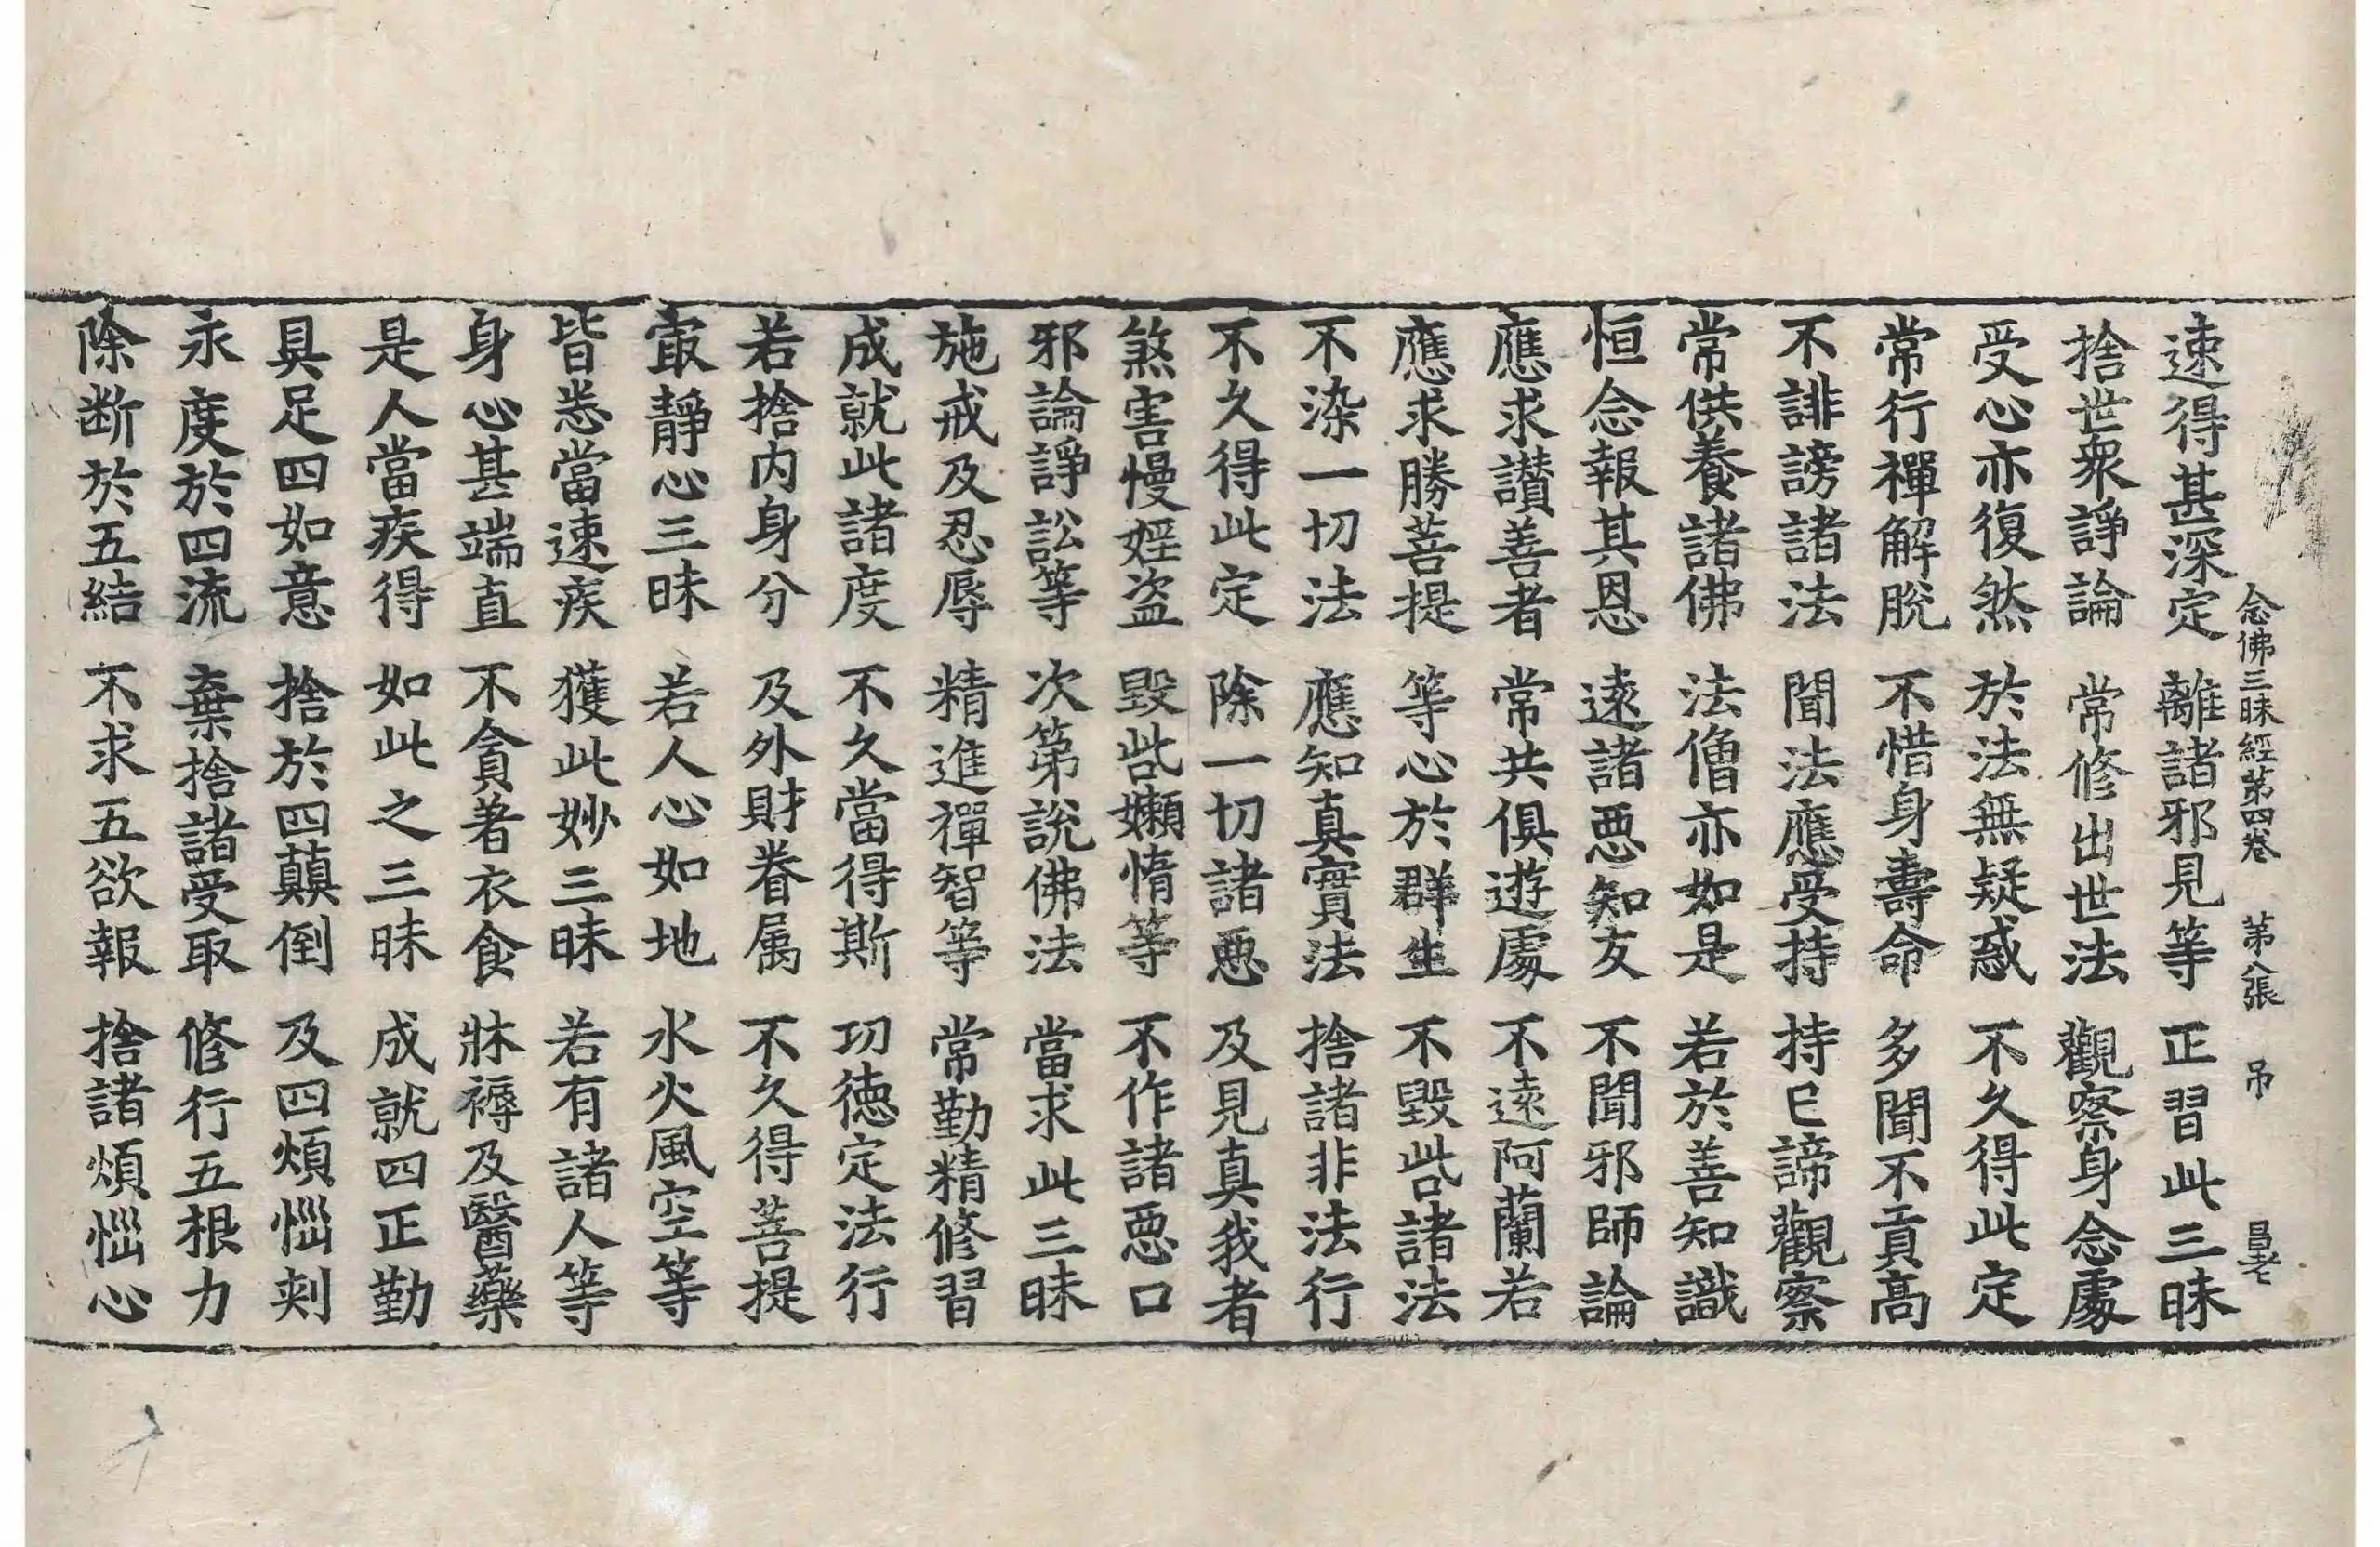 念佛三昧經第四卷　第八張　弔
速得甚深定　離諸邪見等　正習此三昧
捨世衆諍論　常修出世法　觀察身念處
受心亦復然　於法無疑惑　不久得此定
常行禪解脫　不惜身壽命　多聞不貢高
不誹謗諸法　聞法應受持　持已諦觀察
常供養諸佛　法僧亦如是　若於善知識
恒念報其恩　遠諸惡知友　不聞邪師論
應求讃善者　常共俱遊處　不遠阿蘭若
應求勝菩提　等心於群生　不毀呰諸法
不染一切法　應知真實法　捨諸非法行
不久得此定　除一切諸惡　及見真我者
煞害慢婬盗　毀呰嬾惰等　不作諸惡口
邪論諍訟等　次第說佛法　當求此三昧
施戒及忍辱　精進禪智等　常勤精修習
成就此諸度　不久當得斯　功德定法行
若捨内身分　及外財眷属　不久得菩提
㝡靜心三昧　若人心如地　水火風空等
皆悉當速疾　獲此妙三昧　若有諸人等
身心甚端直　不貪著衣食　牀褥及醫藥
是人當疾得　如此之三昧　成就四正勤
具足四如意　捨於四顛倒　及四煩惱刺
永度於四流　棄捨諸受取　修行五根力
除断於五結　不求五欲報　捨諸煩惱心